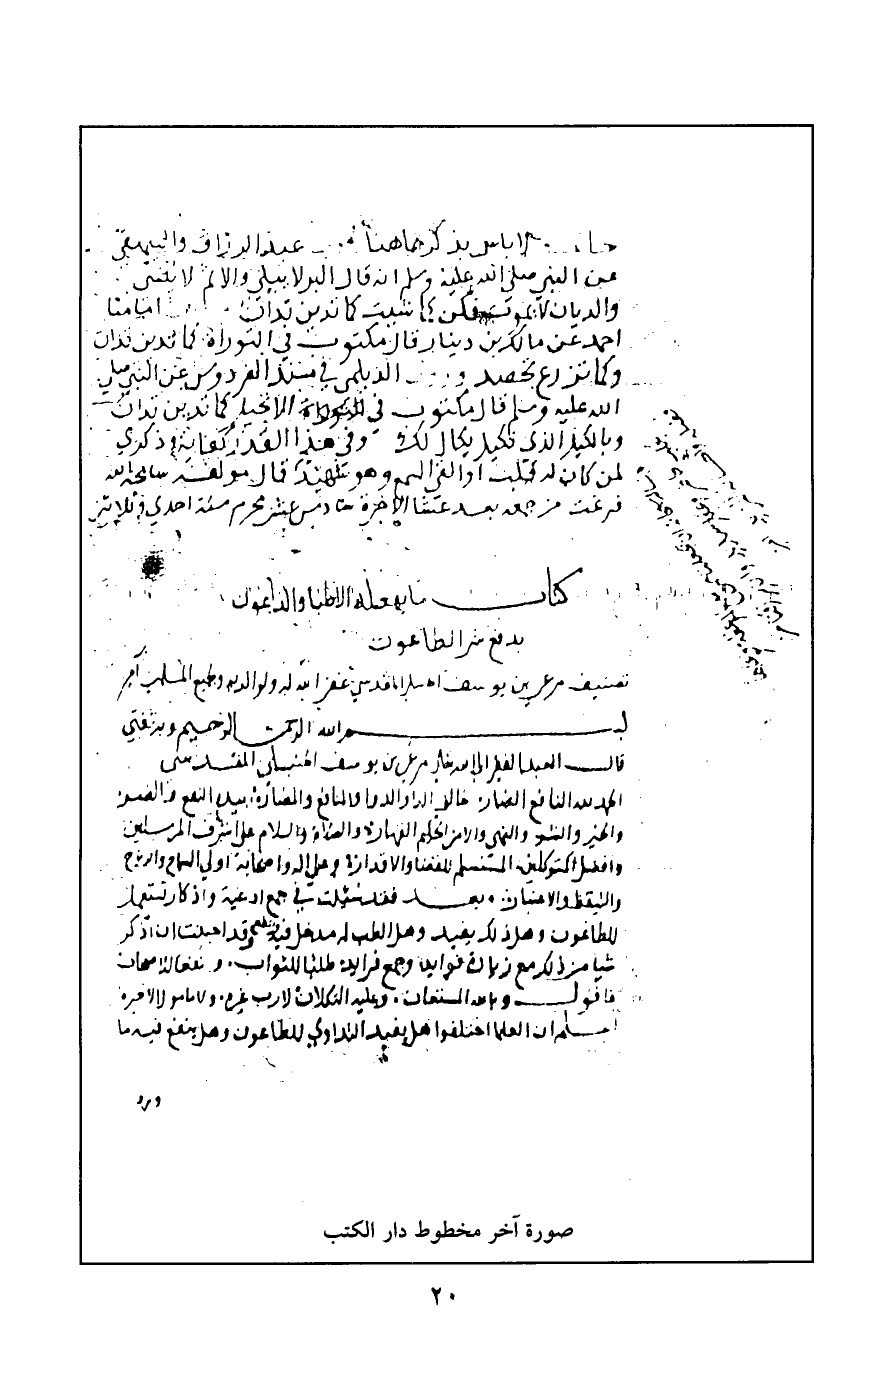 لا باس بذكرها هنا عبد الرزاق والبيهقي
عن النبي صلى الله عليه وسلم انه قال البر لا يبلى والاثم لا ينسى
والديان لا يموت فكن كما شيت كما تدين تدان
احمد عن مالك بن دينار قال مكتوب في التوراة كما تدين تدان
وكما تزرع تحصد الديلمي في مسند الفردوس عن النبي صلى
الله عليه وسلم قال مكتوب في الانجيل كما تدين تدان
وبالكيل الذي تكيل يكال لك وفي هذا القدر كفاية ذكرى
لمن كان له قلب او القى السمع وهو شهيد قال مولفه سامحه الله
فرغت من جمعه بعد عشا الاخرة سادس عشر محرم سنة احدي وثلاثين
كتاب ما يفعله الاطبا والداعون
بدفع شر الطاعون
تصنيف مرعي بن يوسف المقدسي غفر الله له ولوالديه
بسم الله الرحمن الرحيم وبه ثقتي
قال العبد الفقير الى الله تعالى مرعي بن يوسف الحنبلي المقدسي
الحمد لله النافع الضار خالق الدا والدوا والمنافع والمضار بيده النفع والضر
والخير والشر والنهي والامر الحكم القهار والصلاة والسلام على اشرف المرسلين
وافضل المتوكلين المستسلم للقضا والاقدار وعلى اله واصحابه اولي
والتيقظ والاعتبار وبعد فقد سئلت في جمع ادعية واذكار تستعمل
للطاعون وهل ذلك يفيد وهل الطب له مدخل فيه وقد احببت ان اذكر
شيا من ذلك مع زيادة فوايد وجمع فرايد طلبا للثواب ونفعا للاصحاب
فاقول وبالله المستعان وعليه التكلان لا رب غيره ولا مامول الا خيره
اعلم ان العلما اختلفوا هل يفيد التداوي للطاعون وهل ينفع فيه ما
ورد
صورة آخر مخطوط دار الكتب
٢٠